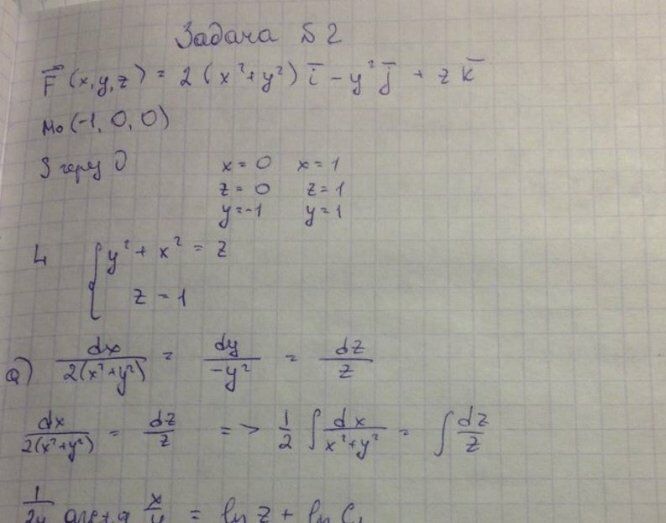 Задача №2
F̅(x,y,z) = 2(x²+y²) i̅ - y² j̅ + z k̅
M₀(-1, 0, 0)
S через O x=0 x=1
z=0 z=1
y=-1 y=1
L { y² + x² = z
z = 1
a) dx/2(x²+y²) = dy/-y² = dz/z
dx/2(x²+y²) = dz/z => 1/2 ∫ dx/x²+y² = ∫ dz/z
1/2y arctg x/y = ln z + ln C₁